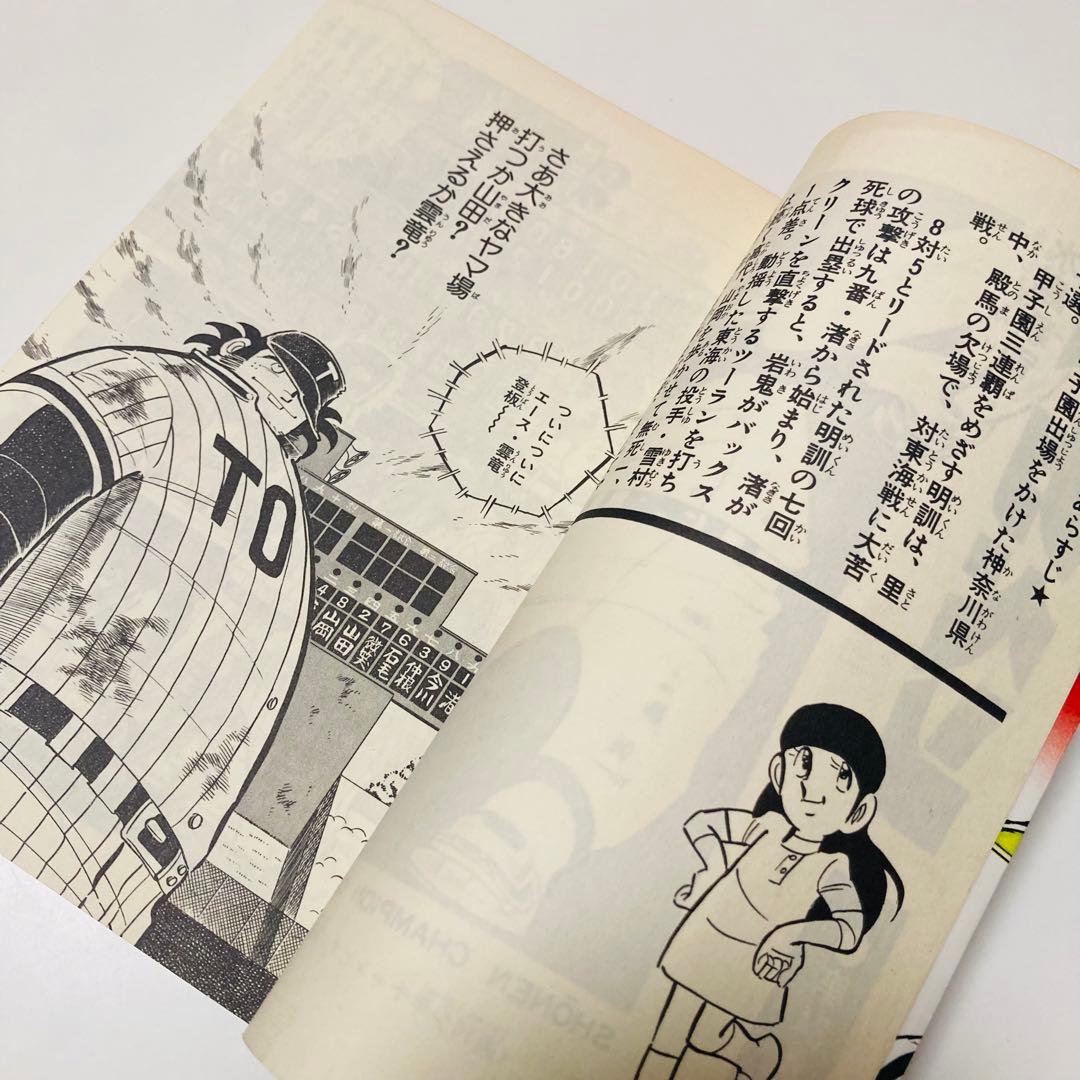 あらすじ★
選。
子園出場をかけた神奈川県
中、甲子園三連覇をめざす明訓は、里
戦。殿馬の欠場で、対東海戦に大苦
8対5とリードされた明訓の七回
の攻撃は九番・渚から始まり、渚が
死球で出塁すると、岩鬼がバックス
クリーンを直撃するツーランを打ち
一点差。動揺した東海の投手・雪村
さあ大きなヤマ場
打つか山田?
押さえるか雲竜?
ついについに
エース・雲竜
登板〜〜
T
TO
4 8 2 7 6 3 9 1
山岡
山田
微笑
石毛
仲根
今川
渚
SHONEN CHAMPIO